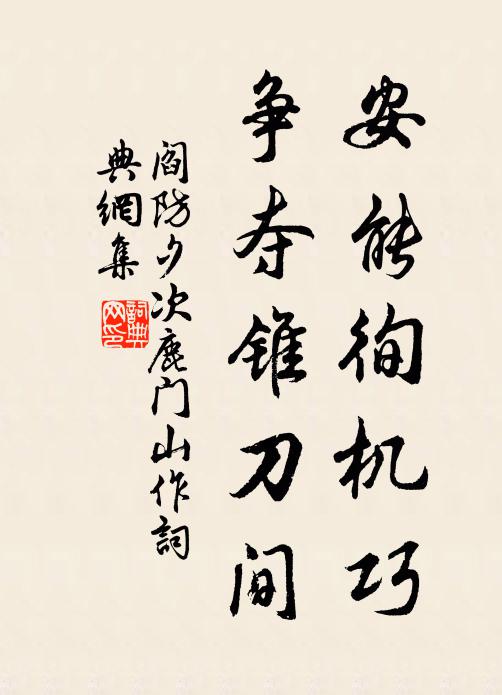 安能徇机巧
争夺锥刀间
阎防夕次鹿门山作詞
典網集
詞典
网印